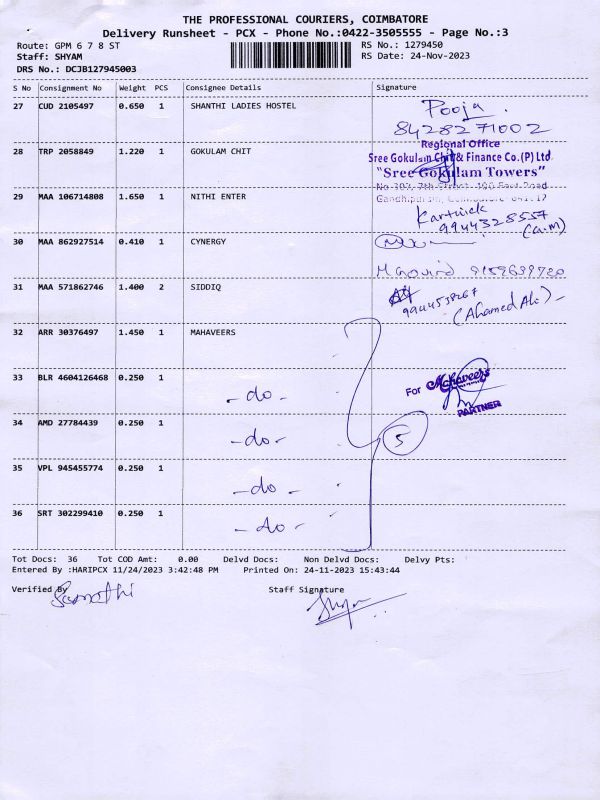 THE PROFESSIONAL COURIERS, COIMBATORE
Delivery Runsheet - PCX - Phone No.:0422-3505555 - Page No.:3
Route: GPM 6 7 8 ST RS No.: 1279450
Staff: SHYAM RS Date: 24-Nov-2023
DRS No.: DCJB127945003
S No Consignment No Weight PCS Consignee Details Signature
27 CUD 2105497 0.650 1 SHANTHI LADIES HOSTEL Pooja.
8428271002
28 TRP 2058849 1.220 1 GOKULAM CHIT
Regional Office
Sree Gokulam Chit & Finance Co.(P) Ltd
"Sree Gokulam Towers"
29 MAA 106714808 1.650 1 NITHI ENTER
Karthick
9944328557
30 MAA 862927514 0.410 1 CYNERGY
31 MAA 571862746 1.400 2 SIDDIQ
(Ahamed Ali)
32 ARR 30376497 1.450 1 MAHAVEERS
33 BLR 4604126468 0.250 1 - do -
For Mahaveers
PARTNER
34 AMD 27784439 0.250 1 - do - 5
35 VPL 945455774 0.250 1 - do -
36 SRT 302299410 0.250 1 - do -
Tot Docs: 36 Tot COD Amt: 0.00 Delvd Docs: Non Delvd Docs: Delvy Pts:
Entered By :HARIPCX 11/24/2023 3:42:48 PM Printed On: 24-11-2023 15:43:44
Verified By Staff Signature